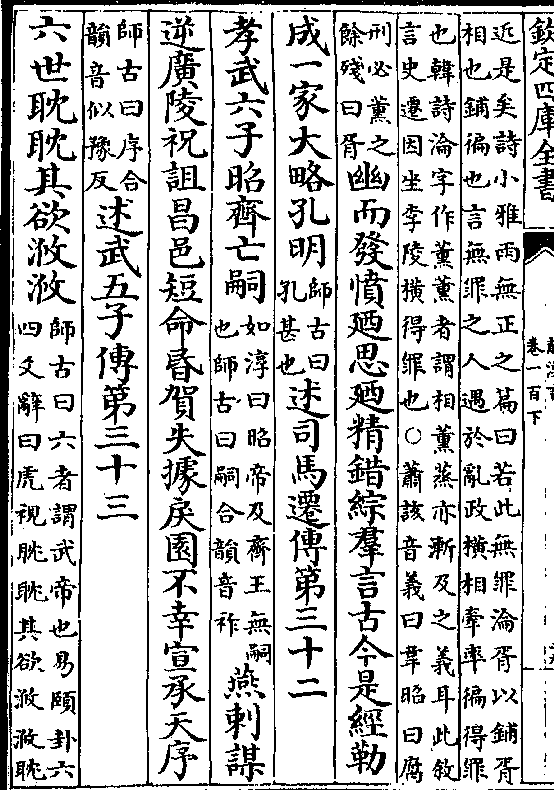 欽定四庫全書
卷一百下
近是矣詩小雅雨無正之篇曰若此無罪淪胥以鋪胥
相也鋪徧也言無罪之人遇於亂政橫相牽率徧得罪
也韓詩淪字作薰薰者謂相薰蒸亦漸及之義耳此敘
言史遷因坐李陵橫得罪也○蕭該音義曰韋昭曰腐
刑必薰之
餘殘曰胥
幽而發憤廼思廼精錯綜羣言古今是經勒
成一家大略孔明
師古曰
孔甚也
述司馬遷傳第三十二
孝武六子昭齊亡嗣
如淳曰昭帝及齊王無嗣
也師古曰嗣合韻音祚
燕剌謀
逆廣陵祝詛昌邑短命昬賀失據戾園不幸宣承天序
師古曰序合
韻音似豫反
述武五子傳第三十三
六世耽耽其欲浟浟
師古曰六者謂武帝也易頤卦六
四爻辭曰虎視眈眈其欲浟浟耽